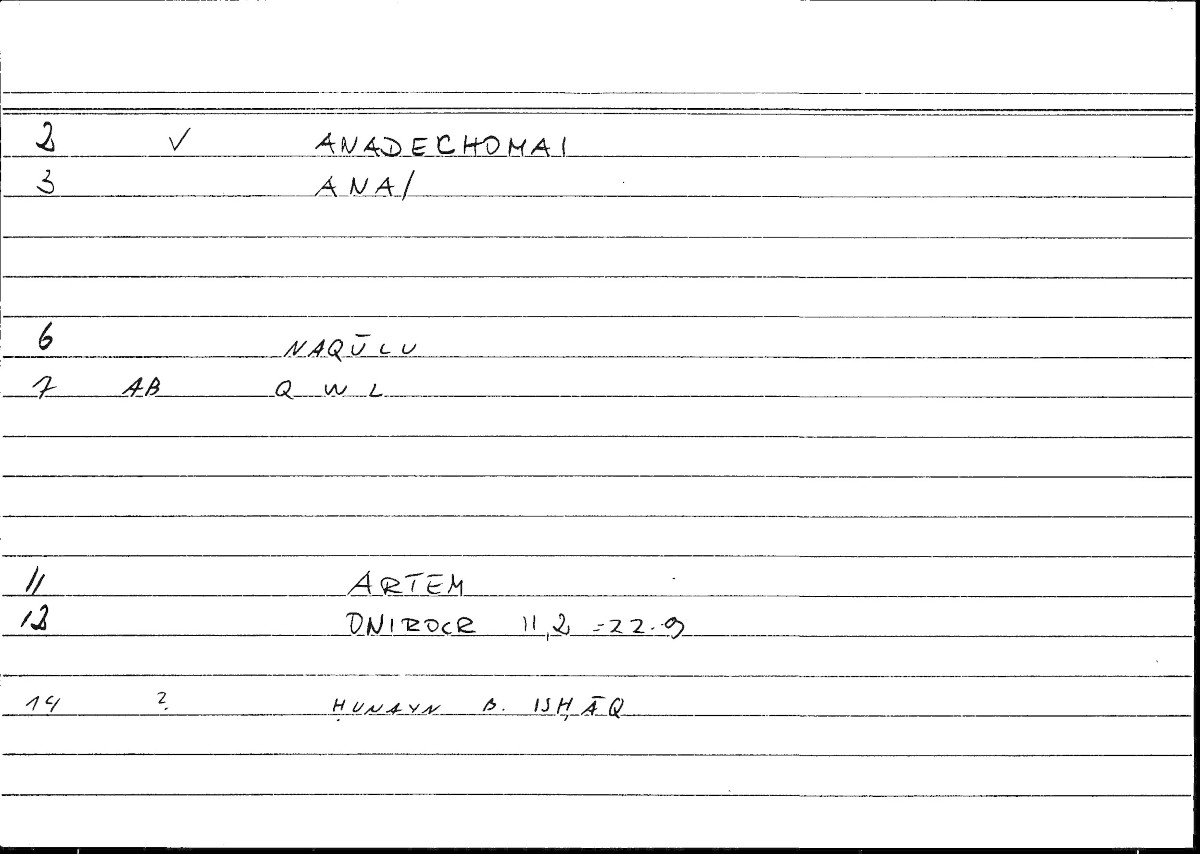 2 ✓ ANADECHOMAI
3 ANA/
6 NAQŪLU
7 AB Q W L
11 ARTEM
12 ONIROCR 11,2 =22.9
14 ? ḤUNAYN B. ISḤĀQ